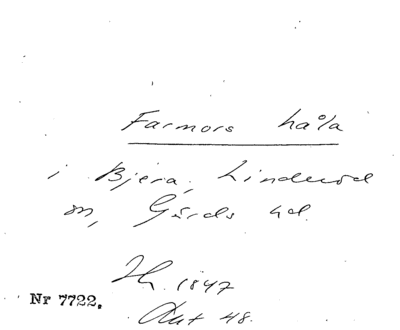 Farmors håla
i Bjera, Linderöd
sn, Gärds hd.
1847
Nr 7722.
48.